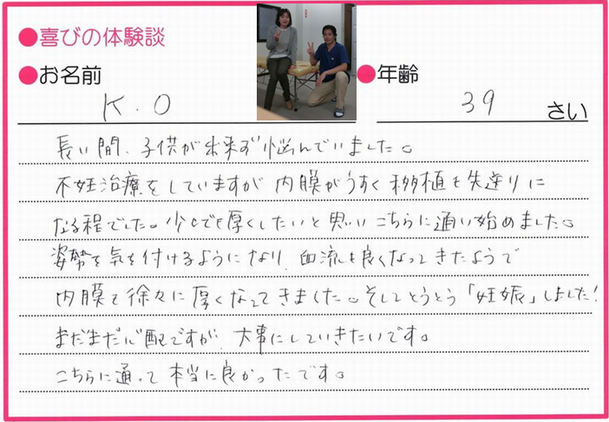 ●喜びの体験談
●お名前
K.O
●年齢
39 さい
長い間、子供が出来ず悩んでいました。
不妊治療をしていますが内膜がうすく移植も先送りに
なる程でした。少しでも厚くしたいと思いこちらに通い始めました。
姿勢も気を付けるようになり、血流も良くなってきたようで
内膜も徐々に厚くなってきました。そしてとうとう「妊娠」しました!
まだまだ心配ですが、大事にしていきたいです。
こちらに通って本当に良かったです。